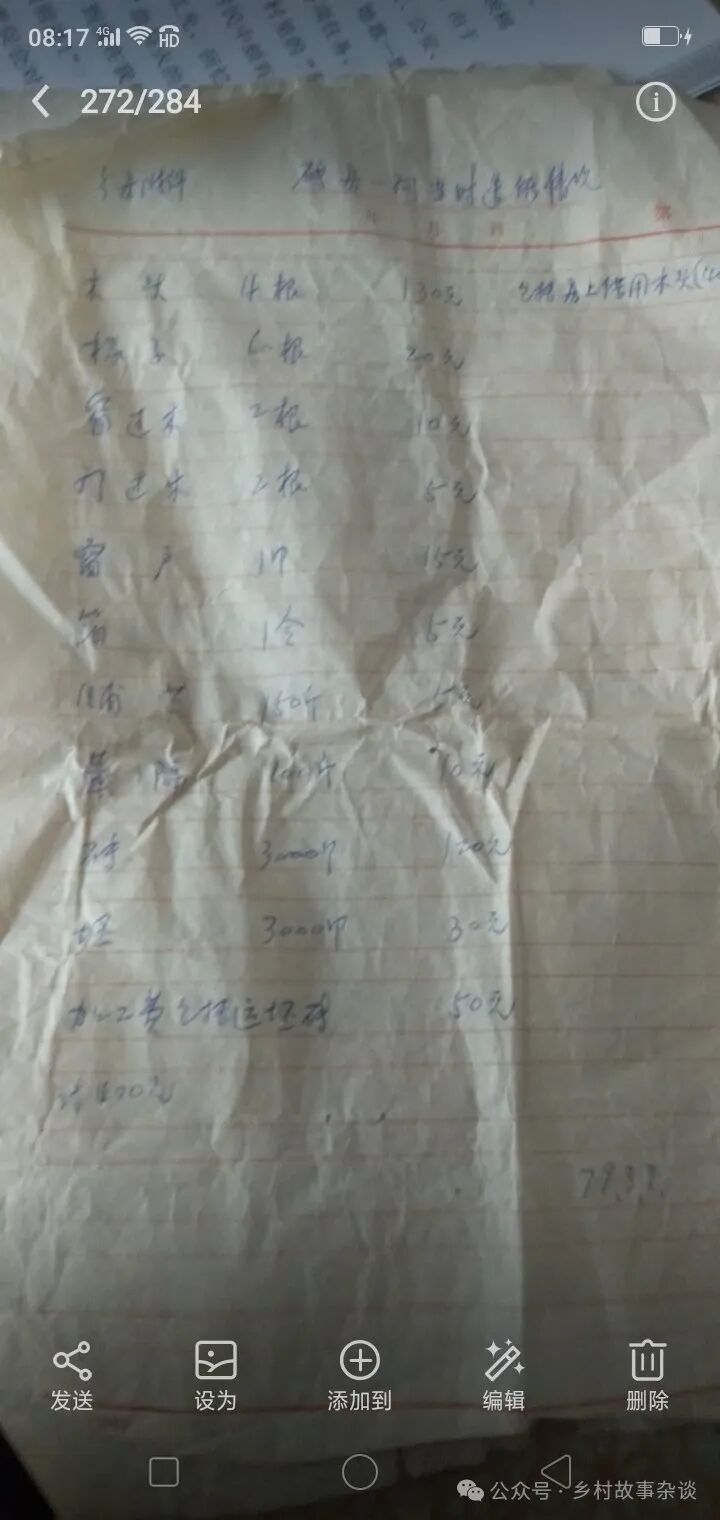 08:17 4G HD
272/284
分家附件
年 月 日 第
木头 4根 130元 包括房上借用木头
檩子 6根 20元
窗过木 2根 10元
门过木 2根 5元
窗户 1个 15元
箔 1合 5元
150斤 15元
100斤 10元
砖 3000个 120元
坯 3000个 30元
加工费包括运坯砖 50元
发送 设为 添加到 编辑 删除
公众号·乡村故事杂谈